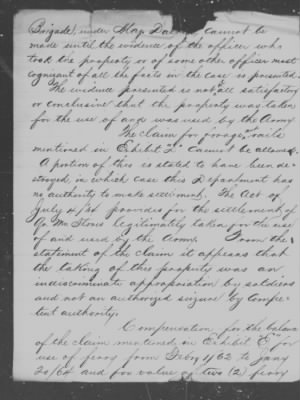 Brigade, under Maj. cannot be
made until the evidence of the officer who
took the property or of some other officer most
cognizant of all the facts in the case is presented.
The evidence presented is not all satisfactory
or conclusive that the property was taken
for the use of and was used by the Army.
The claim for forage & rails
mentioned in Exhibit cannot be allowed.
A portion of this is stated to have been de-
stroyed, in which case this Department has
no authority to make settlement. The Act of
July 4/64 provides for the settlement of
Qr. Mr. Stores legitimately taken for the use
of and used by the Army. From the
statement of the claim it appears that
the taking of this property was an
indiscriminate appropriation by soldiers
and not an authorized seizure by compe-
tent authority.
Compensation for the balance
of the claim mentioned in Exhibit "E" for
use of ferry from Feby 1/62 to Jany
20/64 and for value of two (2) ferry